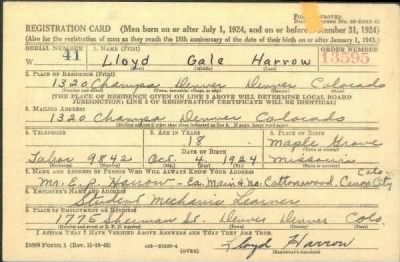 REGISTRATION CARD—(Men born on or after July 1, 1924, and on or before December 31, 1924)
(Also for the registration of men as they reach the 18th anniversary of the date of their birth on or after January 1, 1943.)
SERIAL NUMBER 1. NAME (Print) ORDER NUMBER
W 41 Lloyd Gale Harrow 13595
(First) (Middle) (Last)
2. PLACE OF RESIDENCE (Print)
1320 Champa Denver Denver Colorado
(THE PLACE OF RESIDENCE GIVEN ON LINE 2 ABOVE WILL DETERMINE LOCAL BOARD
JURISDICTION; LINE 2 OF REGISTRATION CERTIFICATE WILL BE IDENTICAL)
3. MAILING ADDRESS
1320 Champa Denver Colorado
4. TELEPHONE 5. AGE IN YEARS 6. PLACE OF BIRTH
18 Maple Grove
DATE OF BIRTH
Tabor 9842 Oct. 4, 1924 Missouri
7. NAME AND ADDRESS OF PERSON WHO WILL ALWAYS KNOW YOUR ADDRESS Colo
Mr. E. P. Harrow - Ea. Main & No. Cottonwood. Canon City
8. EMPLOYER'S NAME AND ADDRESS
Student Mechanic Learner
9. PLACE OF EMPLOYMENT OR BUSINESS
1776 Sherman St. Denver Denver Colo
I AFFIRM THAT I HAVE VERIFIED ABOVE ANSWERS AND THAT THEY ARE TRUE.
DSS Form 1 (OVER) Lloyd Harrow
(Registrant's signature)